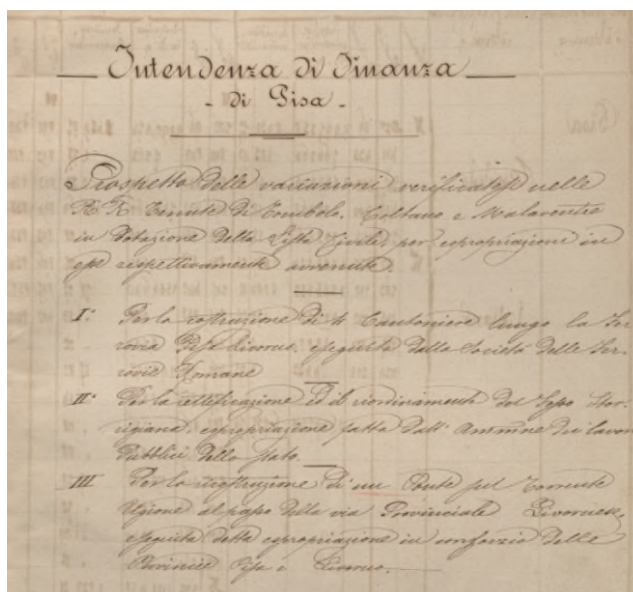 Intendenza di Finanza
- di Pisa -
Prospetto delle variazioni verificatesi nelle
RR. Tenute di Tombolo, Coltano e Malaventre
in Dotazione della Lista Civile, per espropriazione in
esse rispettivamente avvenute.
I° Per la costruzione di 4 Cantoniere lungo la Fer-
rovia Pisa Livorno, eseguita dalla Società delle Fer-
rovie Romane
II° Per la rettificazione ed il riordinamento del
espropriazione fatta dall' Ammne dei lavori
Pubblici dello Stato.
III Per la ricostruzione di un Ponte sul Torrente
Ugione al passo della via Provinciale Livornese,
eseguita detta espropriazione in consorzio delle
Provincie Pisa e Livorno.